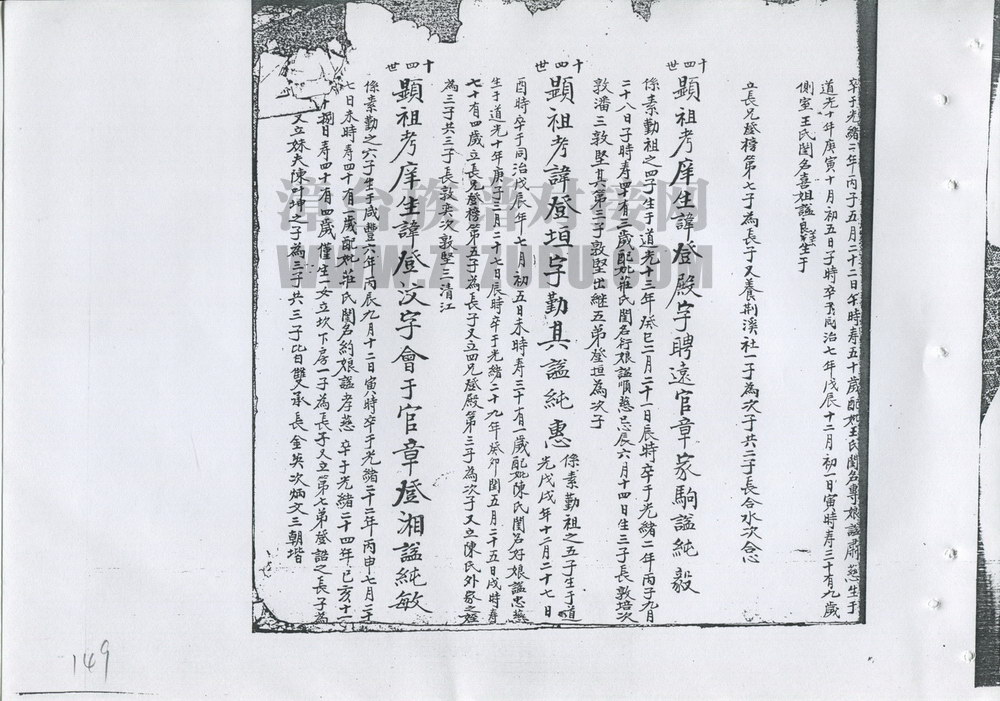 卒于光緒二年丙子五月二十二日午時寿五十歲配妣王氏閨名專娘謚肅慈生于
道光十年庚寅十月初五日子時卒于同治七年戊辰十二月初一日寅時寿三十有九歲
側室王氏閨名喜姐謚良 生于
立長兄登榜第七子為長子又養荆溪社一子為次子共二子長合水次合心
十四世
顯祖考庠生諱登殿字聘遠官章家駒謚純毅
係素勤祖之四子生于道光十三年癸巳二月二十一日辰時卒于光緒二年丙子九月
二十八日子時寿四十有三歲配妣莊氏閨名行娘謚順慈忌辰六月十四日生三子長敦培次
敦潘三敦堅其第三子敦堅出継五弟登垣為次子
十四世
顯祖考諱登垣字勤其謚純惠
係素勤祖之五子生于道
光戊戌年十二月二十七日
酉時卒于同治戊辰年七月初五日未時寿三十有一歲配妣陳氏閨名好娘謚忠慈
生于道光十年庚子三月二十七日辰時卒于光緒二十九年癸卯閏五月二十五日戌時寿
七十有四歲立長兄登榜第五子為長子又立四兄登殿第三子為次子又立陳氏外家之姪
為三子共三子長敦奕次敦堅三清江
十四世
顯祖考庠生諱登汶字會于官章登湘謚純敏
係素勤之六子生于咸豐六年丙辰九月十二日寅時卒于光緒二十二年丙申七月二十
七日未時寿四十有一歲配妣莊氏閨名約娘謚孝慈卒于光緒二十四年己亥十一
十捌日寿四十有四歲僅生一女立坎下房一子為長子又立第七弟登諮之長子為
又立妹夫陳叶坤之子為三子共三子皆曰雙承長金英次炳文三朝堦
漳台族谱对接网
WWW.ZZZUPU.COM
149